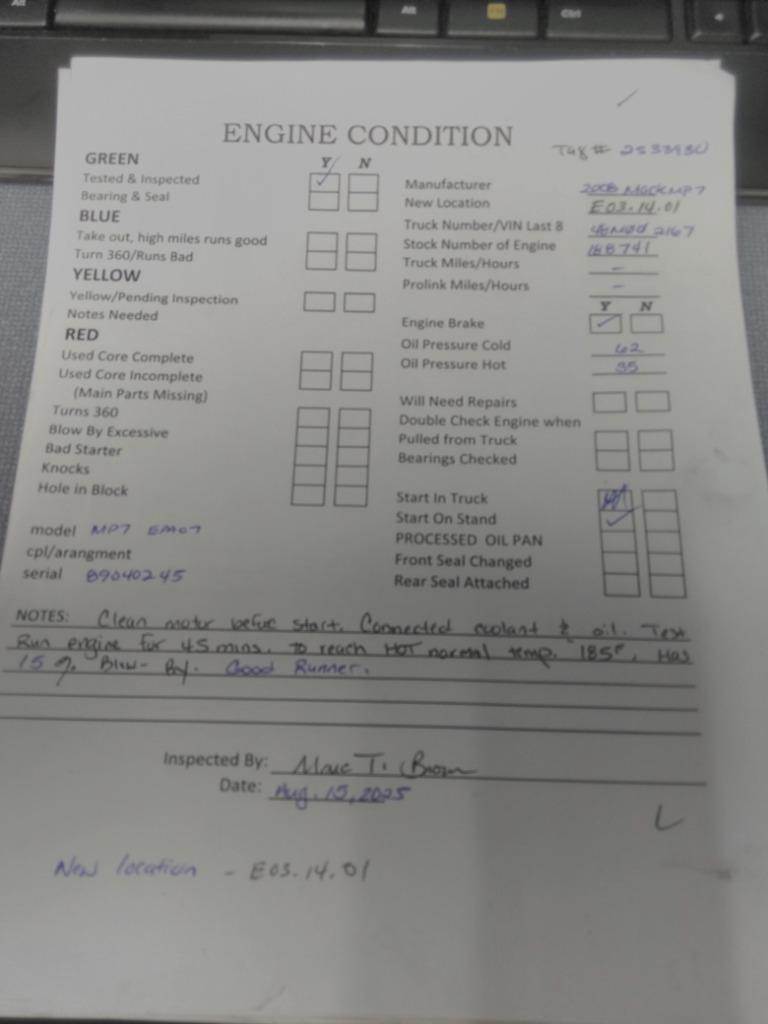 Alt
Alt
Ctrl
ENGINE CONDITION
Tag #
GREEN
Y N
Tested & Inspected
Bearing & Seal
BLUE
Take out, high miles runs good
Turn 360/Runs Bad
YELLOW
Yellow/Pending Inspection
Notes Needed
RED
Used Core Complete
Used Core Incomplete
(Main Parts Missing)
Turns 360
Blow By Excessive
Bad Starter
Knocks
Hole in Block
model MP7 EM07
cpl/arangment
serial 89040245
Manufacturer 2008 Mack MP7
New Location E03.14.01
Truck Number/VIN Last 8 2167
Stock Number of Engine 188741
Truck Miles/Hours -
Prolink Miles/Hours -
Y N
Engine Brake ✓
Oil Pressure Cold 62
Oil Pressure Hot 35
Will Need Repairs
Double Check Engine when
Pulled from Truck
Bearings Checked
Start In Truck
Start On Stand ✓
PROCESSED OIL PAN
Front Seal Changed
Rear Seal Attached
NOTES: Clean motor befue start. Connected coolant & oil. Test
Run engine for 45 mins. to reach HOT normal temp. 185°. Has
15 % Blow-By. Good Runner.
Inspected By: Marc T. Brown
Date: Aug. 15, 2025
New location - E03.14.01